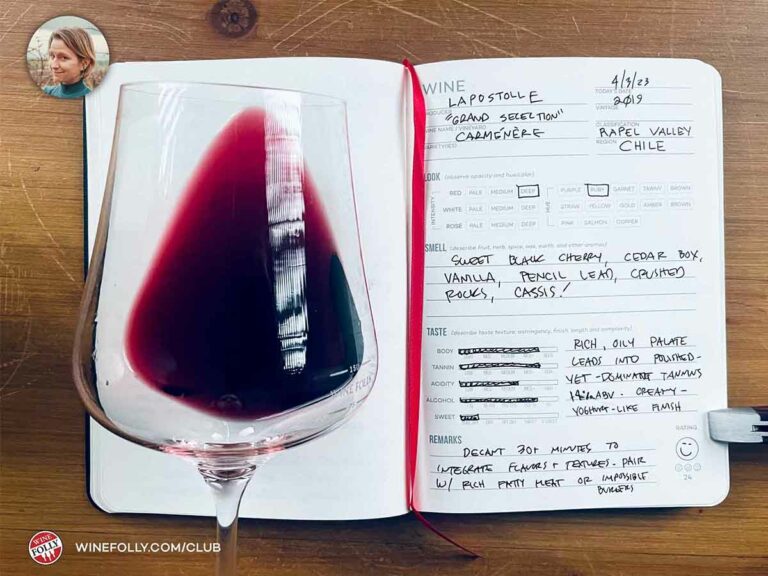 WINE
4/3/23
TODAY'S DATE
LAPOSTOLLE
2019
PRODUCER
VINTAGE
"GRAND SELECTION"
CLASSIFICATION
WINE NAME / VINEYARD
RAPEL VALLEY
CARMÉNÈRE
REGION
CHILE
VARIETY(IES)
LOOK (observe opacity and hue/color)
INTENSITY
RED PALE MEDIUM DEEP
PURPLE RUBY GARNET TAWNY BROWN
WHITE PALE MEDIUM DEEP
HUE
STRAW YELLOW GOLD AMBER BROWN
ROSÉ PALE MEDIUM DEEP
PINK SALMON COPPER
SMELL (describe fruit, herb, spice, oak, earth, and other aromas)
SWEET BLACK CHERRY, CEDAR BOX,
VANILLA, PENCIL LEAD, CRUSHED
ROCKS, CASSIS!
TASTE (describe taste, texture, astringency, finish, length and complexity)
BODY
TANNIN
ACIDITY
ALCOHOL
SWEET
RICH, OILY PALATE
LEADS INTO POLISHED-
YET-DOMINANT TANNINS
ABV. CREAMY-
YOGHURT-LIKE FINISH
REMARKS
DECANT 30+ MINUTES TO
INTEGRATE FLAVORS + TEXTURES. PAIR
W/ RICH FATTY MEAT OR IMPOSSIBLE
BURGERS
RATING
24
150
WINE FOLLY
WINE
FOLLY
WINEFOLLY.COM/CLUB